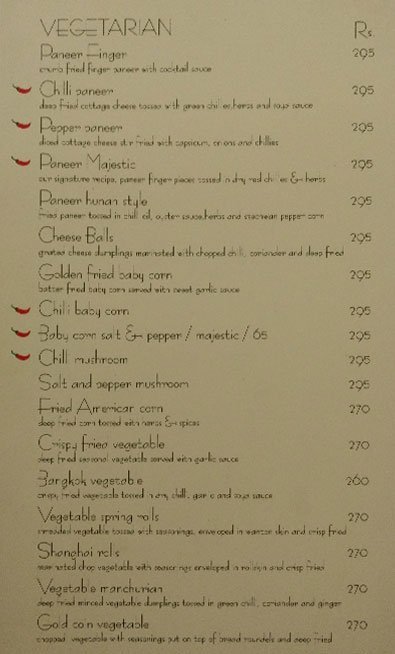 VEGETARIAN Rs.
Paneer Finger 295
crumb fried finger paneer with cocktail sauce
Chilli paneer 295
deep fried cottage cheese tossed with green chillies,herbs and soya sauce
Pepper paneer 295
diced cottage cheese stir fried with capsicum, onions and chillies
Paneer Majestic 295
our signature recipe, paneer finger pieces tossed in dry red chillies & herbs
Paneer hunan style 295
fried paneer tossed in chilli oil, oyster sauce,herbs and szechean pepper corn
Cheese Balls 295
grated cheese dumplings marinated with chopped chilli, coriander and deep fried
Golden fried baby corn 295
batter fried baby corn served with sweet garlic sauce
Chilli baby corn 295
Baby corn salt & pepper / majestic / 65 295
Chilli mushroom 295
Salt and pepper mushroom 295
Fried American corn 270
deep fried corn tossed with herbs & spices
Crispy fried vegetable 270
deep fried seasonal vegetable served with garlic sauce
Bangkok vegetable 260
crispy fried vegetable tossed in dry chilli, garlic and soya sauce
Vegetable spring rolls 270
shredded vegetable tossed with seasonings, enveloped in wanton skin and crisp fried
Shanghai rolls 270
marinated chop vegetable with seasonings enveloped in rolls and crisp fried
Vegetable manchurian 270
deep fried minced vegetable dumplings tossed in green chilli, coriander and ginger
Gold coin vegetable 270
chopped vegetable with seasonings put on top of bread roundels and deep fried